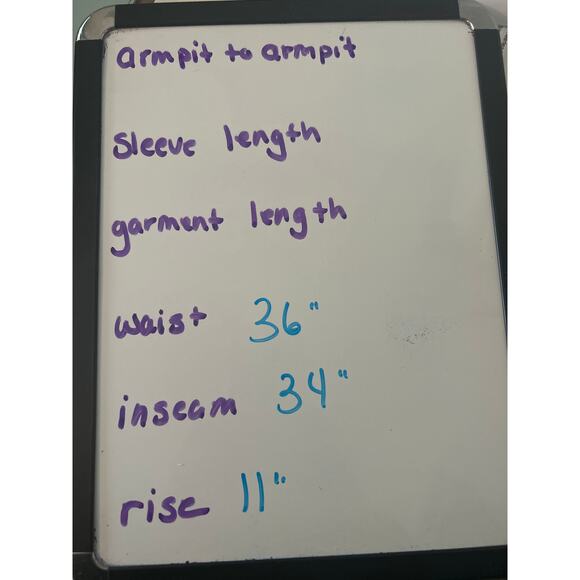 armpit to armpit
Sleeve length
garment length
waist 36"
inseam 34"
rise 11"